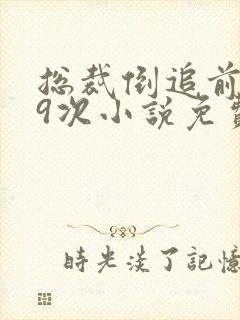 总裁倒追前
9次小说免费
時光淡了記憶